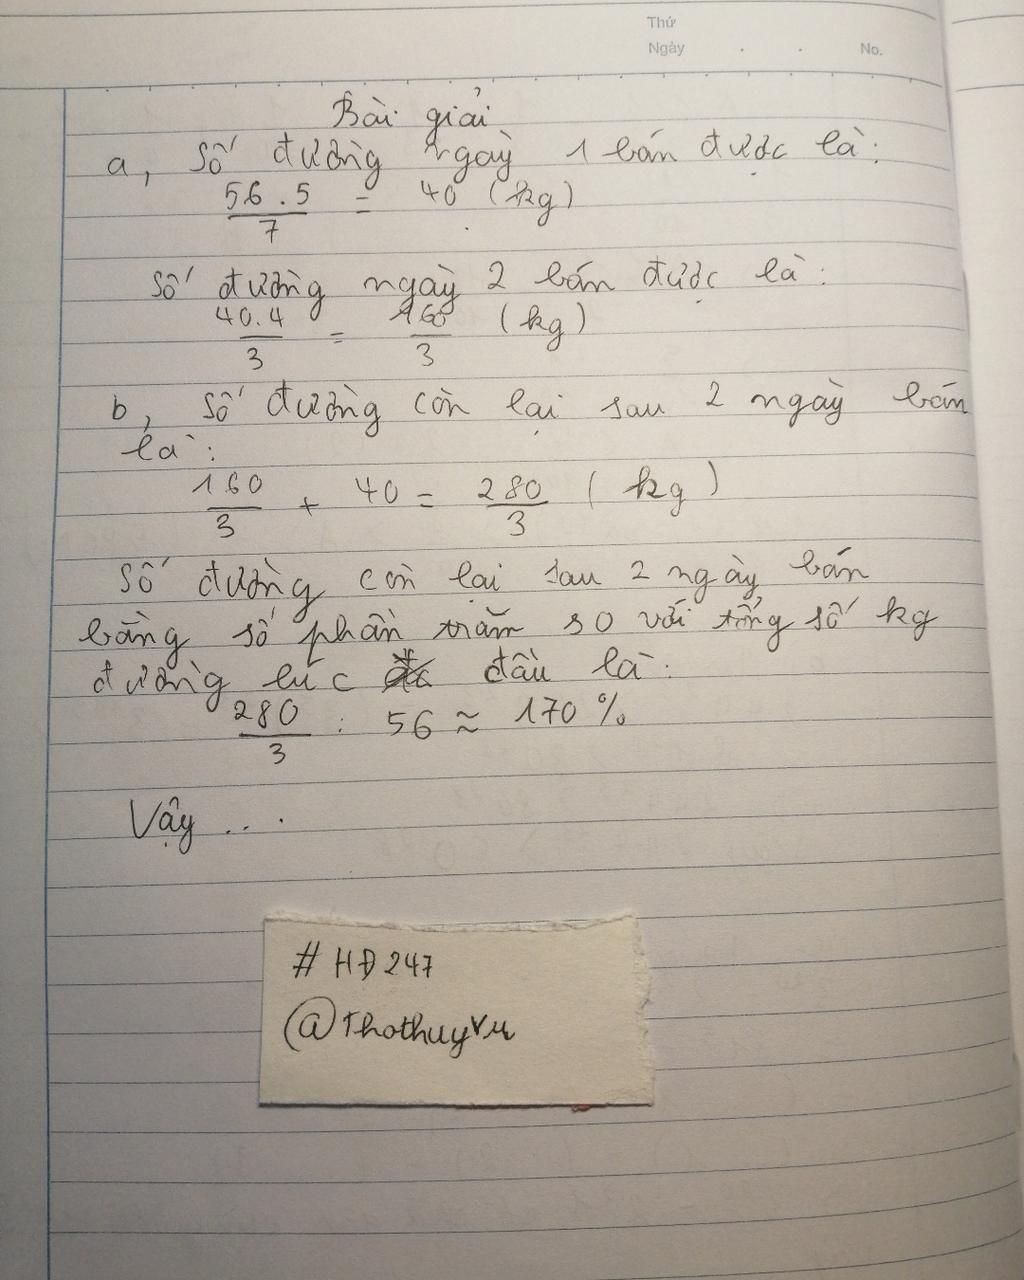 Thứ
Ngày . . No.
Bài giải
a, Số đường ngày 1 bán được là:
56.5/7 = 40 (kg)
Số đường ngày 2 bán được là:
40.4/3 = 160/3 (kg)
b, Số đường còn lại sau 2 ngày bán
là:
160/3 + 40 = 280/3 (kg)
Số đường còn lại sau 2 ngày bán
bằng số phần trăm so với tổng số kg
đường lúc đầu là:
280/3 : 56 ≈ 170 %
Vậy ...
# HĐ247
@ThothuyVu